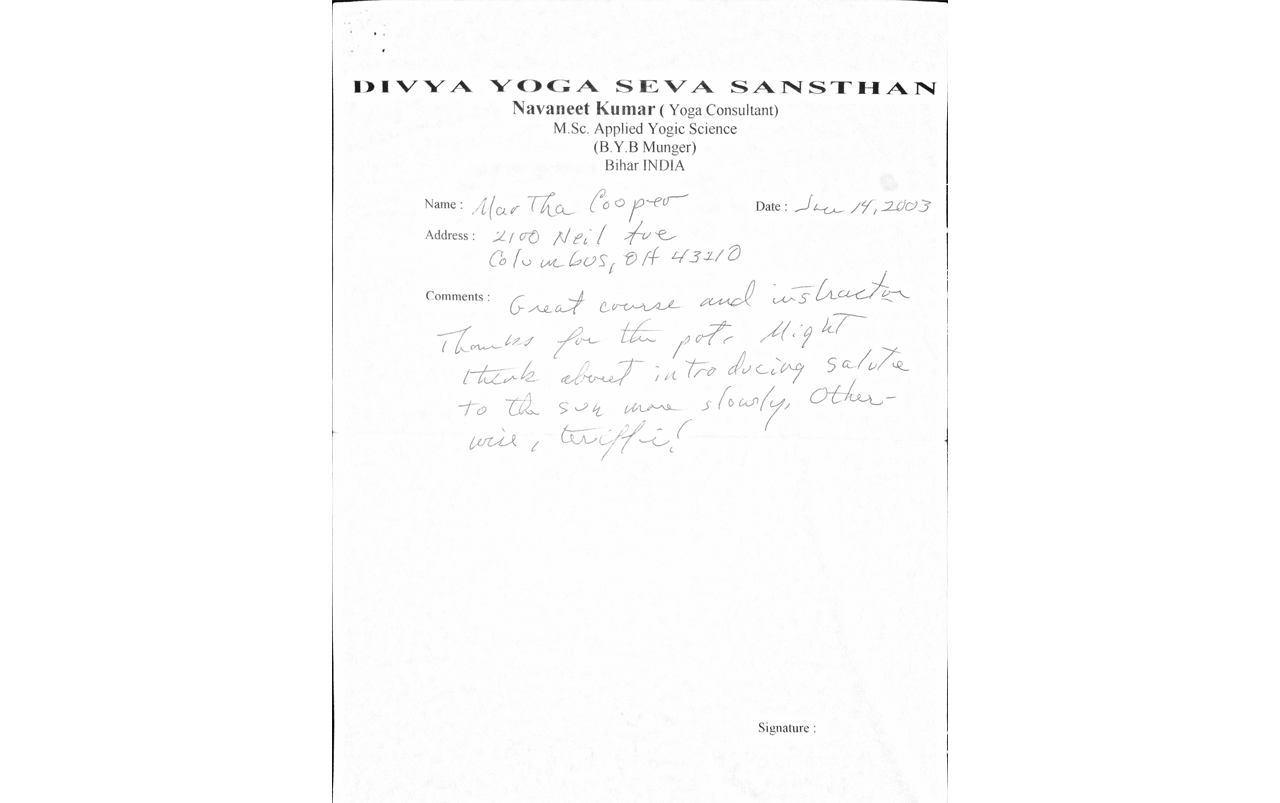 DIVYA YOGA SEVA SANSTHAN
Navaneet Kumar ( Yoga Consultant)
M.Sc. Applied Yogic Science
(B.Y.B Munger)
Bihar INDIA
Name : Martha Cooper Date : 14, 2003
Address : 2100 Neil Ave
Columbus, OH 43210
Comments : Great course and instructor
Thanks for the pot. Might
think about introducing salute
to the sun more slowly. Other-
wise, teriffic!
Signature :